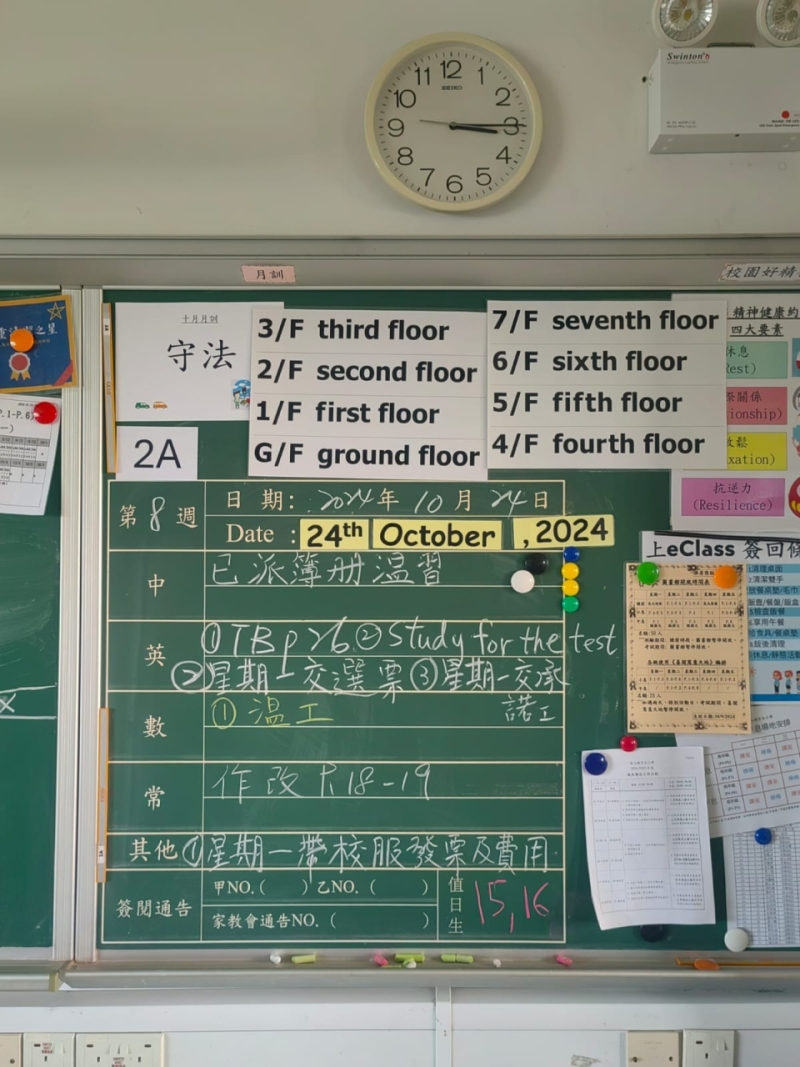 11 12 1
10 2
9 3
8 4
7 6 5
SEIKO
Swinton
月訓
校園好精
十月月訓
守法
3/F third floor
2/F second floor
1/F first floor
G/F ground floor
7/F seventh floor
6/F sixth floor
5/F fifth floor
4/F fourth floor
精神健康約
四大要素
休息
(Rest)
係關係
ionship)
放鬆
xation)
抗逆力
(Resilience)
之星
P.1-P.6)
2A
第 8 週
日 期: 2024 年 10 月 24 日
Date : 24th October , 2024
中
已派簿册温習
英
① TB p26 ② Study for the test
② 星期一交選票 ③ 星期一交承
諾工
數
① 温工
常
作改 P.18-19
其他
① 星期一帶校服發票及費用
簽閱通告
甲NO. ( ) 乙NO. ( )
家教會通告NO. ( )
值日生
15, 16
上eClass 簽回條
清理桌面
清潔雙手
享用午餐
飯後清理